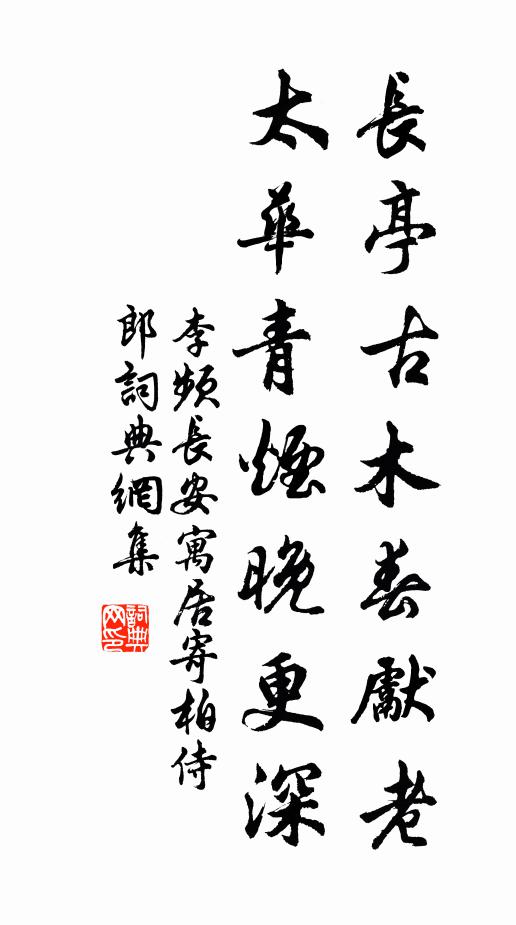 長亭古木春獻老
太華青煙晚更深
李頻長安寓居寄柏侍
郎詞典網集
詞典
网印